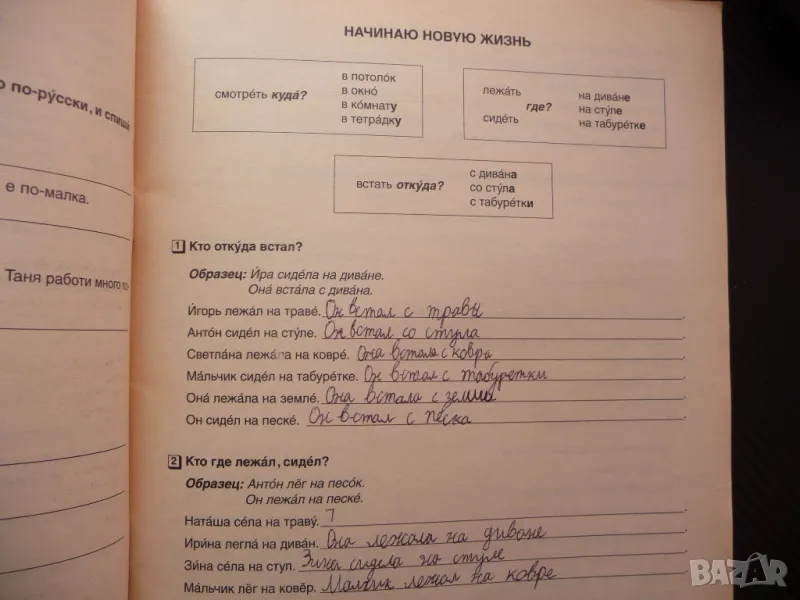 о по-ру́сски, и спиши́
е по-малка.
Таня работи много по-
НАЧИНАЮ НОВУЮ ЖИЗНЬ
смотре́ть куда́?
в потоло́к
в окно́
в ко́мнату
в тетра́дку
лежа́ть
где?
сиде́ть
на дива́не
на сту́ле
на табуре́тке
встать отку́да?
с дива́на
со сту́ла
с табуре́тки
1 Кто отку́да встал?
Образец: И́ра сиде́ла на дива́не.
Она́ вста́ла с дива́на.
И́горь лежа́л на траве́. Он встал с травы
Анто́н сиде́л на сту́ле. Он встал со стула
Светла́на лежа́ла на ковре́. Она встала с ковра
Ма́льчик сиде́л на табуре́тке. Он встал с табуретки
Она́ лежа́ла на земле́. Она встала с земли
Он сиде́л на песке́. Он встал с песка
2 Кто где лежа́л, сиде́л?
Образец: Анто́н лёг на песо́к.
Он лежа́л на песке́.
Ната́ша се́ла на траву́.
Ири́на легла́ на дива́н. Она лежала на диване
Зи́на се́ла на стул. Зина сидела на стуле
Ма́льчик лёг на ковёр. Малчик лежал на ковре
BAZAR